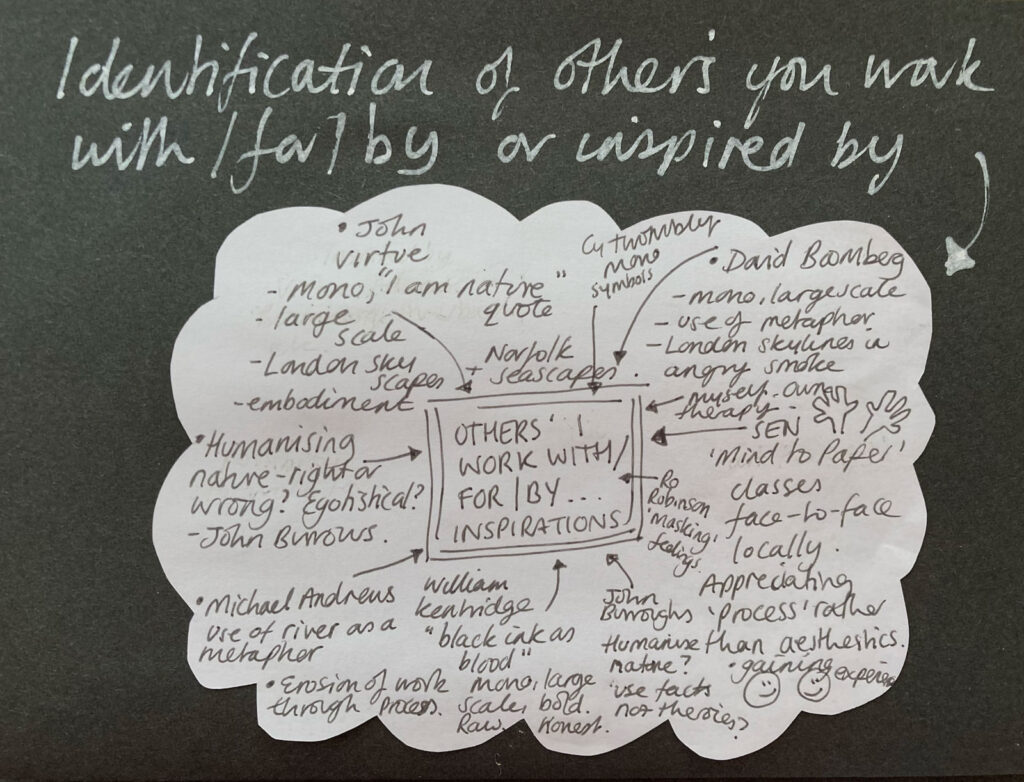 Identification of others you work
with / for / by or inspired by
• John
virtue
- Mono, "I am nature"
quote
- large
scale
- London sky
scapes
+ Norfolk
seascapes.
- embodiment
Cy twombly
mono
symbols
• David Boomberg
- mono, largescale
- use of metaphor
- London skylines in
angry smoke
myself - own
therapy.
SEN
'Mind to Paper'
classes
face-to-face
locally.
Appreciating
'process' rather
than aesthestics.
• gaining experience
OTHERS' I
WORK WITH/
FOR/BY...
INSPIRATIONS
Ro
Robinson
'masking'
feelings.
• Humanising
nature - right or
wrong? Egotistical?
- John Burrows.
• Michael Andrews
use of river as a
metaphor
• Erosion of work
through process.
William
Kentridge
"black ink as
blood"
mono, large
scale, bold.
Raw. Honest.
John
Burroughs
Humanise
nature?
'use facts
not theories?